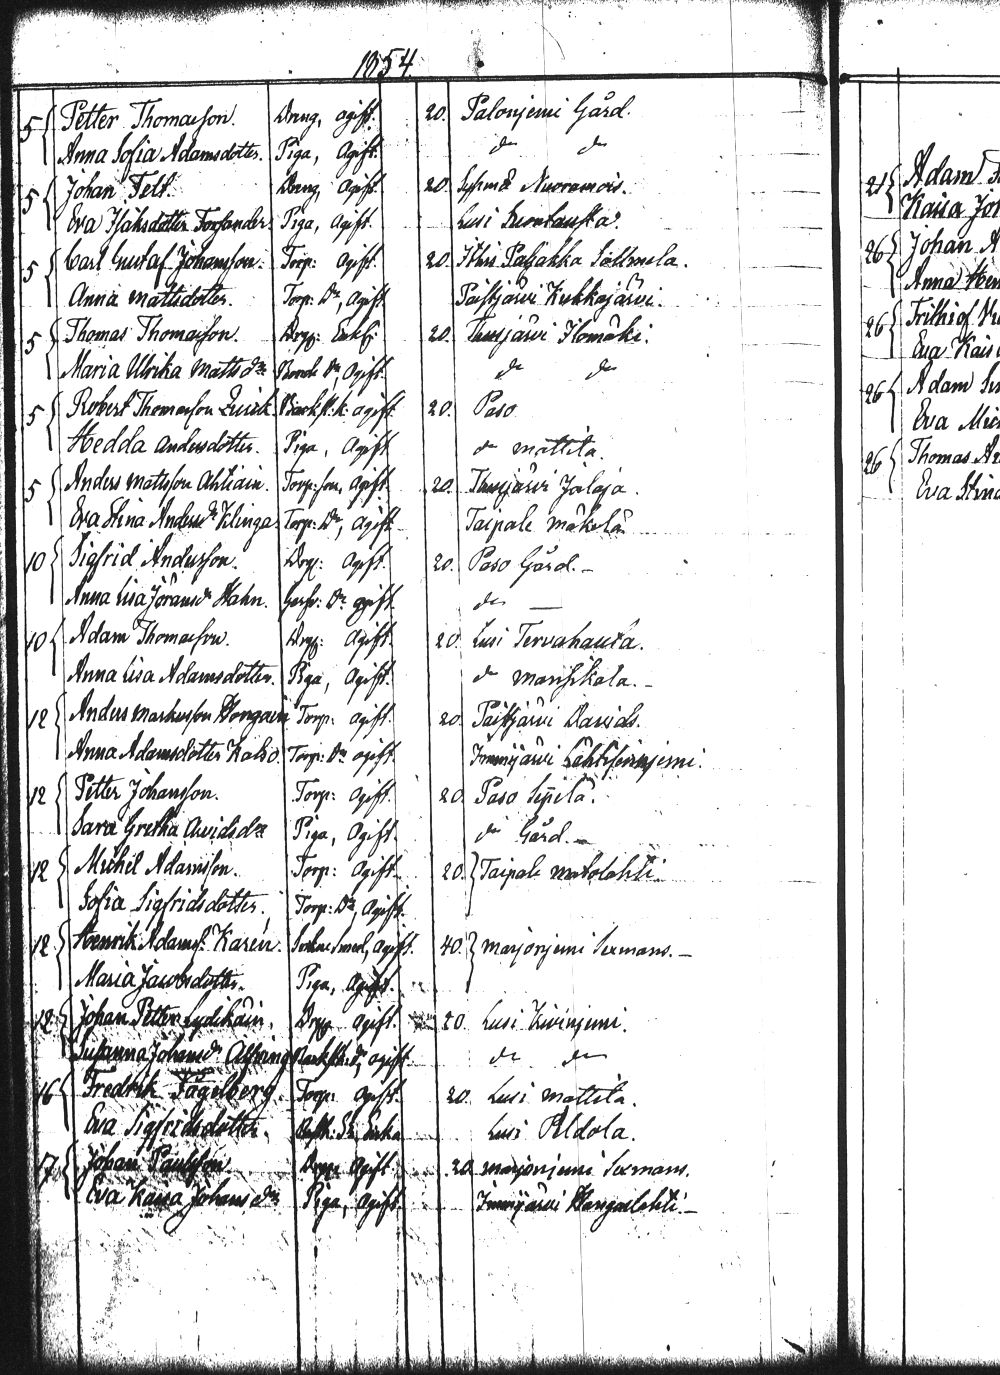 1854
5 Petter Thomasson. Dreng, ogift. 20. Palonjemi Gård.
Anna Sofia Adamsdotter. Piga, Ogift. do do
5 Johan Felt. Dreng, Ogift. 20. Sysmä Nuoramois.
Eva Isaksdotter Forssander. Piga, ogift. Lusi
5 Carl Gustaf Johansson. Torp: Ogift. 20. Paljakka
Anna Mattsdotter. Torp: Dr, Ogift. Paistjärvi Kukkajärvi.
5 Thomas Thomasson. Enkl: 20. Thusjärvi Ilomäki.
Maria Ulrika Matts dr Bonde Dr, Ogift. do do
5 Robert Thomasson ogift 20. Paso
Hedda Andersdotter. Piga, Ogift. do Mattila.
5 Anders Mattsson Ahtiain. Torp: son, Ogift. 20. Thusjärvi Jaloja.
Eva Stina Andersdr Klinga Torp: Dr, Ogift. Taipale Mäkelä
10 Sigfrid Andersson. Drg: Ogift. 20. Paso Gård. –
Anna Lisa Göransdr Hahn. Dr ogift. do —
10 Adam Thomasson. Drg: Ogift. 20. Lusi Tervahauta.
Anna Lisa Adamsdotter. Piga, Ogift. do Mansikala. –
12 Anders Markusson Hongain Torp: ogift. 20. Paistjärvi Davids.
Anna Adamsdotter Kalso. Torp: Dr ogift. Imnijärvi
12 Petter Johansson. Torp: Ogift. 20. Paso Sepilä.
Sara Gretha Arvidsdr Piga, Ogift. do Gård. –
12 Michel Adamsson. Torp: Ogift. 20. Taipale Matolahti.
Sofia Sigfridsdotter. Torp: Dr, Ogift.
12 Henrik Adamss. Karén. Sockne Smed, Ogift. 40. Marjonjemi Sexmans. –
Maria Jacobsdotter. Piga, Ogift.
12 Johan Petter Lydikäin. Drg: ogift. 20. Lusi Kivinjemi.
Susanna Johansdr ogift do do
16 Fredrik Fagelberg. Torp: Ogift. 20. Lusi Mattila.
Eva Sigfridsdotter. Enka Lusi Peldola.
17 Johan Paulsson Drg: Ogift. 20. Marjonjemi Sexmans.
Eva Kaisa Johansdr Piga, Ogift. Imnijärvi Kangaslahti. –
21 Adam
Kaisa
26 Johan
Anna
26 Frithiof
Eva Kaisa
26 Adam
Eva
26 Thomas
Eva Stina